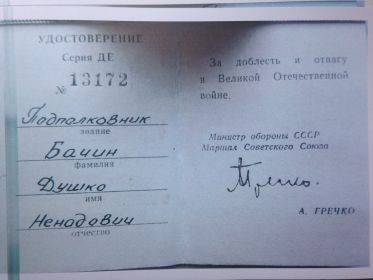 УДОСТОВЕРЕНИЕ
Серия ДЕ
№ 13172
Подполковник
звание
Бачин
фамилия
Душко
имя
Ненадович
отчество
За доблесть и отвагу
в Великой Отечественной
войне.
Министр обороны СССР
Маршал Советского Союза
Гречко.
А. ГРЕЧКО